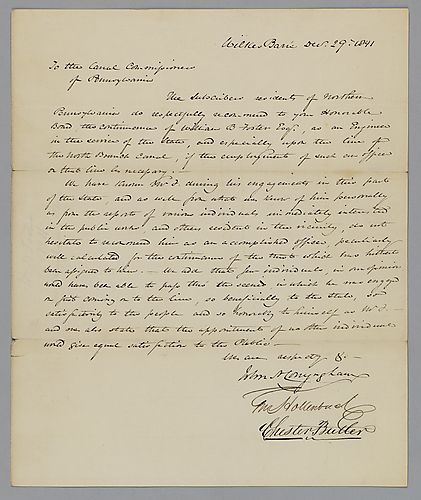 Wilkes Barre Dec. 29th 1841
To the Canal Commissioners
of Pennsylvania
The Subscribers residents of Northern
Pennsylvania do respectfully recommend to your Honorable
Bord the continuance of William B Foster Esqr, as an Engineer
in the service of the State, and especially upon the line of
the North Branch Canal, if the employment of such an officer
on that line be necessary.
We have known Mr F. during his engagements in this part
of the State, and as well from what we know of him personally
as from the reports of various individuals immediately interested
in the public works, and others resident in the vicinity, do not
hesitate to recommend him as an accomplished officer, peculiarly
well calculated for the continuance of the trust which has hitherto
been assigned to him. — We add that few individuals, in our opinion
would have been able to pass thro the scenes in which he was engaged
on first coming on to the line, so beneficially to the State, so
satisfactorily to the people and so honorably to himself as Mr F. —
and we also state that the appointment of no other individual
would give equal satisfaction to the Public —
We are respecty &c —
John N Conyngham
Hollenback
Chester Butler